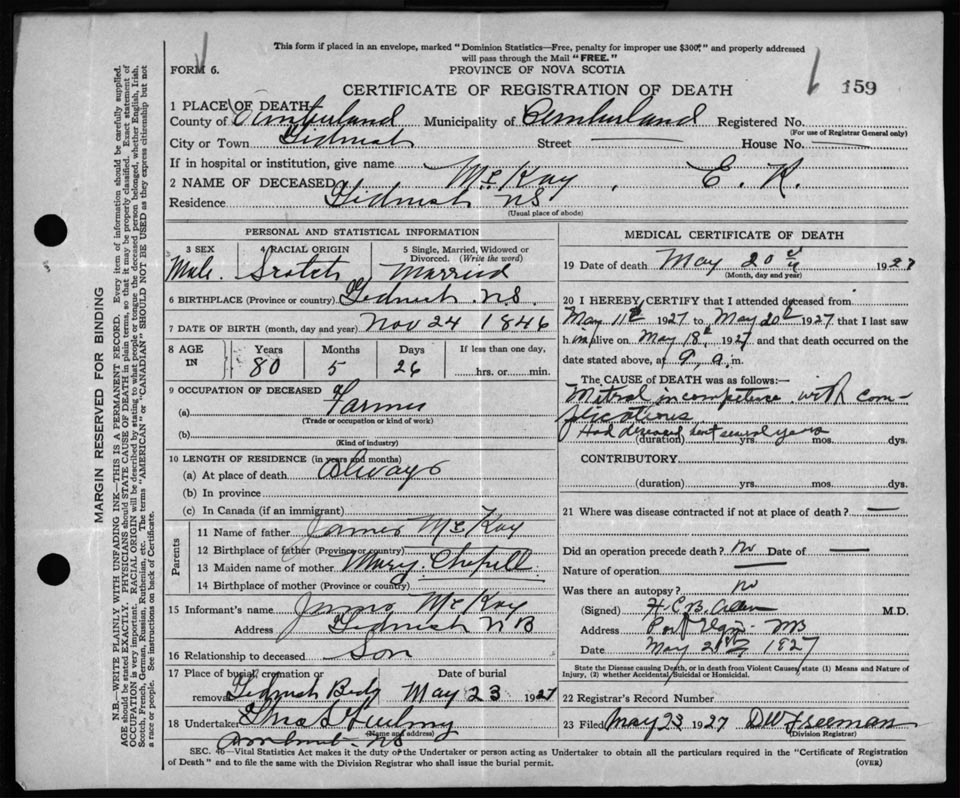 This form if placed in an envelope, marked "Dominion Statistics—Free, penalty for improper use $300," and properly addressed
will pass through the Mail "FREE."
FORM 6.
PROVINCE OF NOVA SCOTIA
CERTIFICATE OF REGISTRATION OF DEATH
159
1 PLACE OF DEATH
County of Cumberland Municipality of Cumberland Registered No.
(For use of Registrar General only)
City or Town Tidnish Street House No.
If in hospital or institution, give name
2 NAME OF DECEASED McKay, E. R.
Residence Tidnish NS
(Usual place of abode)
PERSONAL AND STATISTICAL INFORMATION
3 SEX 4 RACIAL ORIGIN 5 Single, Married, Widowed or
Divorced. (Write the word)
Male. Scotch Married
6 BIRTHPLACE (Province or country) Tidnish N.S.
7 DATE OF BIRTH (month, day and year) Nov 24 1846
8 AGE IN Years Months Days If less than one day,
80 5 26 hrs. or min.
9 OCCUPATION OF DECEASED
(a) Farmer
(Trade or occupation or kind of work)
(b)
(Kind of industry)
10 LENGTH OF RESIDENCE (in years and months)
(a) At place of death Always
(b) In province
(c) In Canada (if an immigrant)
Parents
11 Name of father James McKay
12 Birthplace of father (Province or country)
13 Maiden name of mother Mary Chapell
14 Birthplace of mother (Province or country)
15 Informant's name James McKay
Address Tidnish N B
16 Relationship to deceased Son
17 Place of burial, cremation or Date of burial
removal Tidnish Bedg May 23 1927
18 Undertaker
(Name and address)
NS
MEDICAL CERTIFICATE OF DEATH
19 Date of death May 20 1927
(Month, day and year)
20 I HEREBY CERTIFY that I attended deceased from
May 11th 1927 to May 20th 1927 that I last saw
him alive on May 18th 1927 and that death occurred on the
date stated above, at 9 a. m.
The CAUSE OF DEATH was as follows:—
Mitral incompetence with com-
plications
Had diseased heart several years
(duration) yrs. mos. dys.
CONTRIBUTORY
(duration) yrs. mos. dys.
21 Where was disease contracted if not at place of death? —
Did an operation precede death? no Date of —
Nature of operation —
Was there an autopsy? no
(Signed) H. C. B. M.D.
Address Port Elgin NB
Date May 21st 1927
State the Disease causing Death, or in death from Violent Causes, state (1) Means and Nature of
Injury, (2) whether Accidental, Suicidal or Homicidal.
22 Registrar's Record Number
23 Filed May 23 1927 DW Freeman
(Division Registrar)
SEC. 46—Vital Statistics Act makes it the duty of the Undertaker or person acting as Undertaker to obtain all the particulars required in the "Certificate of Registration
of Death" and to file the same with the Division Registrar who shall issue the burial permit.
(OVER)
MARGIN RESERVED FOR BINDING
N.B.—WRITE PLAINLY WITH UNFADING INK—THIS IS A PERMANENT RECORD. Every item of information should be carefully supplied.
AGE should be stated EXACTLY. PHYSICIANS should STATE CAUSE OF DEATH in plain terms, so that it may be properly classified. Exact statement of
OCCUPATION is very important. RACIAL ORIGIN will be described by stating to what people or tongue the deceased person belonged, whether English, Irish,
Scotch, French, German, Russian, Ruthenian, etc. The terms "AMERICAN" or "CANADIAN" SHOULD NOT BE USED as they express citizenship but not
a race or people. See instructions on back of Certificate.